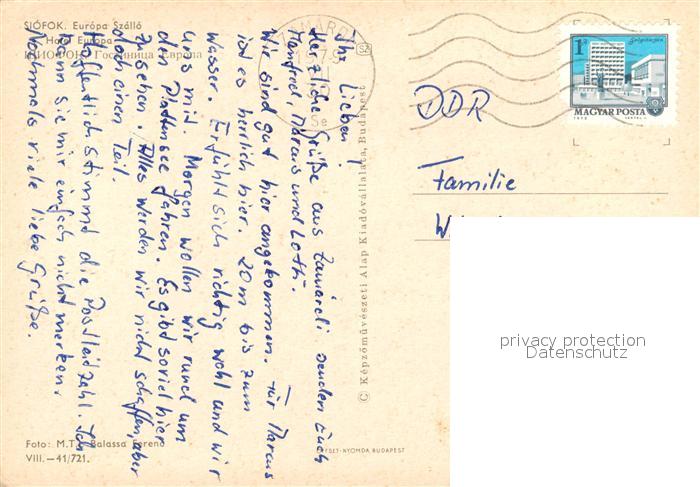 SIÓFOK. Európa Szálló
Hotel Europa
ШИОФОК. Гостиница Европа
Ihr Lieben!
Herzliche Grüße aus Zamárdi senden Euch
Manfred, Marcus und Lotti.
Wir sind gut hier angekommen. Für Marcus
ist es herrlich hier. 20m bis zum
Wasser. Er fühlt sich richtig wohl und wir
uns mit. Morgen wollen wir rund um
den Plattensee fahren. Es gibt soviel hier
zu sehen. Alles werden wir nicht schaffen aber
doch einen Teil.
Hoffentlich stimmt die Postleitzahl. Ich
kann sie mir einfach nicht merken.
Nochmals viele liebe Grüße.
Foto: M.T.I. Balassa Ferenc
VIII.—41/721.
© Képzőművészeti Alap Kiadóvállalata, Budapest
OFFSET-NYOMDA BUDAPEST
SZ
ZAMÁRDI
1Ft
MAGYAR POSTA
DDR
Familie
privacy protection
Datenschutz